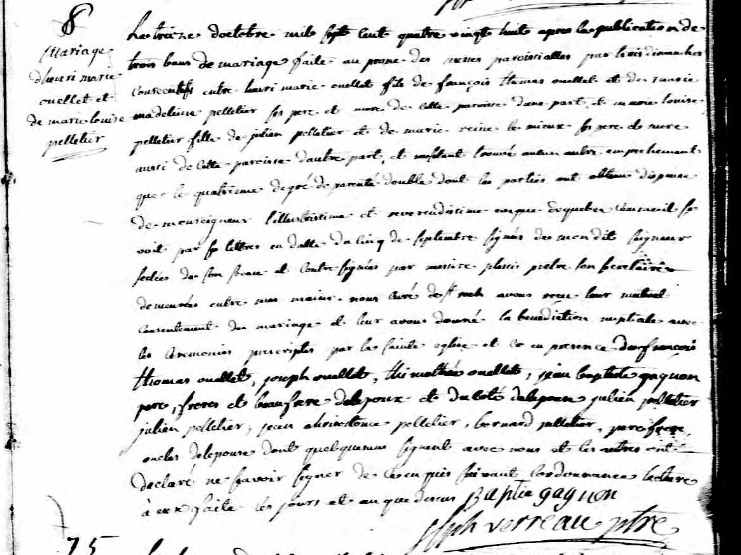 8
Mariage
d'henri marie
ouellet et
de marie louise
pelletier
Le treize d'octobre mile sept cent quatre vingt huit apres la publication de
trois bans de mariage faite au prone des messes paroissialles par trois dimanches
consecutifs entre henri marie ouellet fils de françois thomas ouellet et de marie
madeleine pelletier ses pere et mere de cette paroisse d'une part, et marie louise
pelletier fille de julien pelletier et de marie reine le mieux ses pere et mere
aussi de cette paroisse d'autre part, et n'estant trouvé aucun autre empechement
que le quatrieme degré de parenté double dont les parties ont obtenu dispense
de monseigneur l'illustrissime et reverendissime eveque de quebec comme il se
voit par ses lettres en datte du cinq de septembre signées de mon dit seigneur
scelées de son sceau et contre signées par messire plessis pretre son secretaire
demeurées entre mes mains. nous curé de st roch avons reçu leur mutuel
consentement de mariage et leur avons donné la benediction nuptiale avec
les ceremonies prescriptes par la sainte eglise et ce en presence de françois
thomas ouellet, joseph ouellet, thimothée ouellet, jean baptiste gagnon
pere, freres et beaufrere de lepoux et du coté de lepouse julien pelletier
julien pelletier, jean pelletier, bernard pelletier, pere frere
oncles de lepouse dont quelquesuns signent avec nous et les autres ont
declaré ne savoir signer de ce enquis suivant l'ordonnance lecture
à eux faite les jours et an que dessus Baptis gagnon
Jph verreau ptre
75